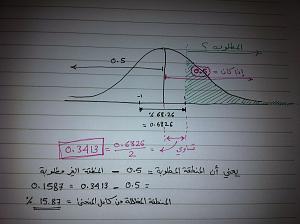 المطلوبة ؟
0.5
0.5 إذا كان
-1
% 68.26
= 0.6826
0.3413 = 0.6826 / 2 = تساوي
يعني أن المنطقة المطلوبة = 0.5 - المنطقة الغير مطلوبة
= 0.5 - 0.3413 = 0.1587
المنطقة المظللة من كامل المنحنى = 15.87 %